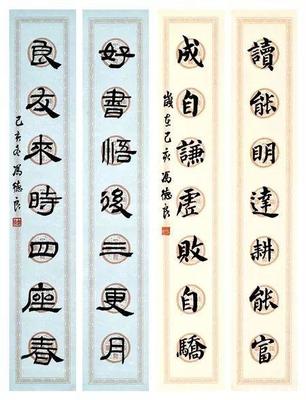 讀能明達耕能富
成自謙虛敗自驕
歲在己亥馮德良
好書悟後三更月
良友來時四座春
己亥冬馮德良